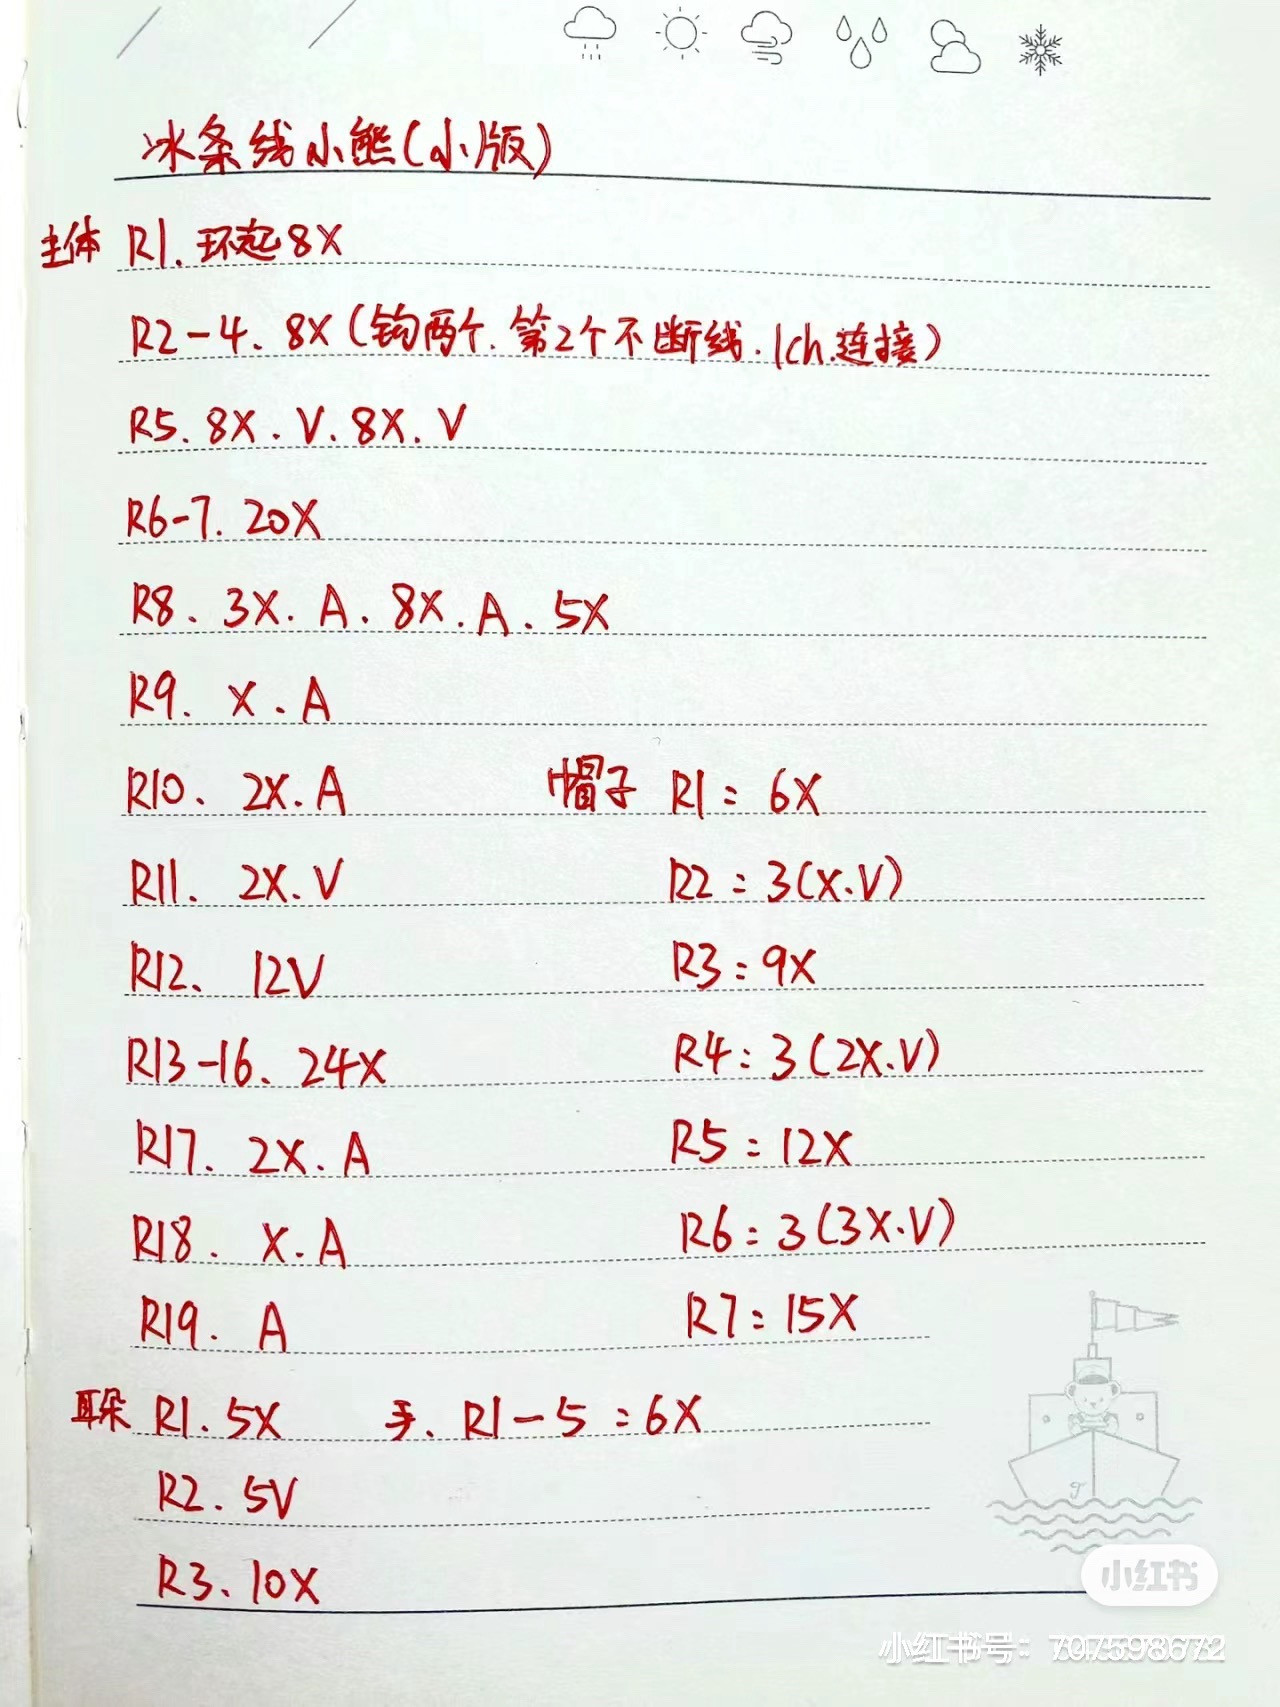 冰条线小熊(小版)
主体 R1. 环起8X
R2-4、8X(钩两个.第2个不断线.1ch.连接)
R5、8X.V.8X.V
R6-7. 20X
R8、3X.A.8X.A.5X
R9. X.A
R10、2X.A
R11、2X.V
R12、12V
R13-16、24X
R17. 2X.A
R18. X.A
R19. A
帽子 R1: 6X
R2: 3(X.V)
R3: 9X
R4: 3(2X.V)
R5: 12X
R6: 3(3X.V)
R7: 15X
耳朵 R1. 5X
R2. 5V
R3、10X
手、R1-5:6X
小红书
小红书号：707598672